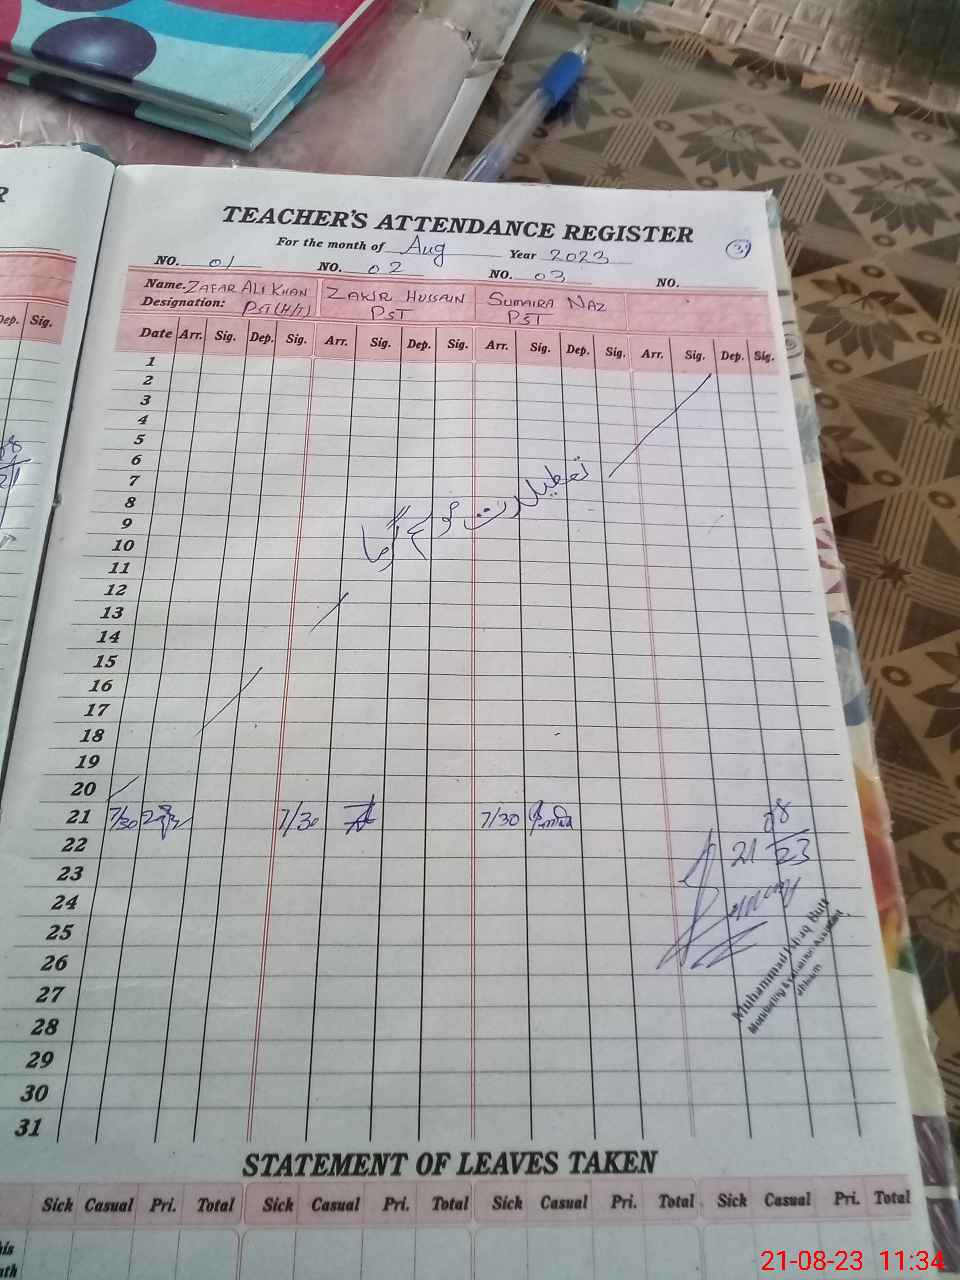 R
Dep. Sig.
TEACHER'S ATTENDANCE REGISTER
For the month of Aug Year 2023
3
NO. 01 NO. 02 NO. 03 NO.
Name. ZAFAR ALI KHAN ZAKIR HUSSAIN SUMAIRA NAZ
Designation: PST (H/T) PST PST
Date Arr. Sig. Dep. Sig. Arr. Sig. Dep. Sig. Arr. Sig. Dep. Sig. Arr. Sig. Dep. Sig.
1
2
3
4
5
6
7
تعطیلات موسم گرما
8
9
10
11
12
13
14
15
16
17
18
19
20
21 7/30 7/30 7/30
22
21 08 23
23
24
25
26
Muhammad Ishaq Butt
Monitoring & Evaluation Assistant
Jhelum
27
28
29
30
31
STATEMENT OF LEAVES TAKEN
Sick Casual Pri. Total Sick Casual Pri. Total Sick Casual Pri. Total Sick Casual Pri. Total
21-08-23 11:34